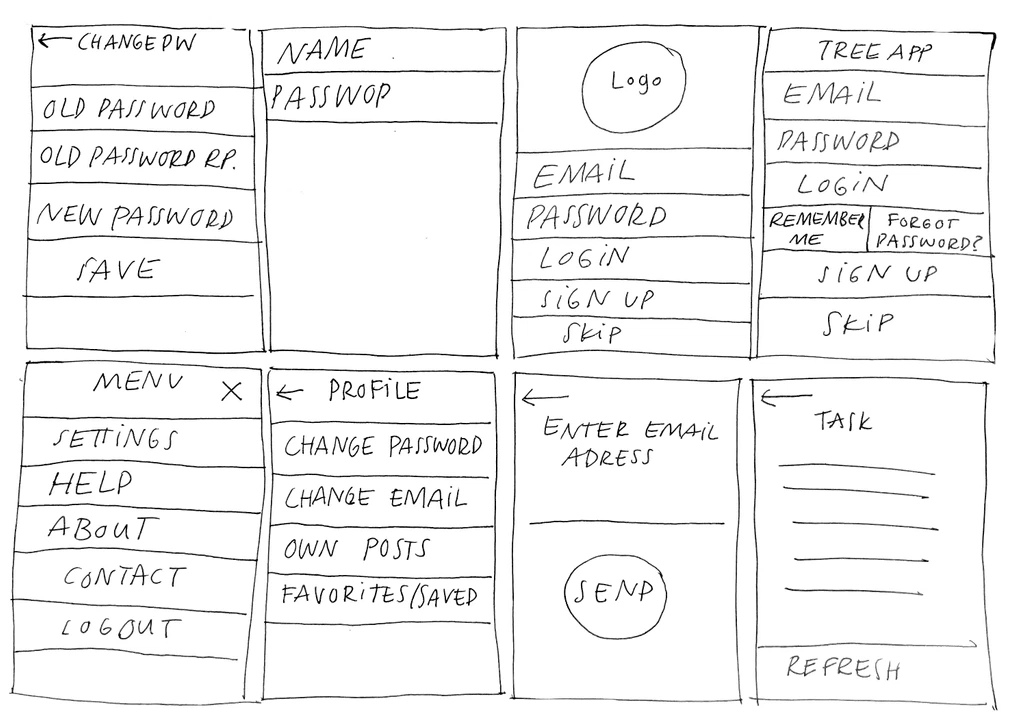 CHANGE PW
OLD PASSWORD
OLD PASSWORD RP.
NEW PASSWORD
SAVE
NAME
PASSWOP
Logo
EMAIL
PASSWORD
LOGIN
SIGN UP
SKIP
TREE APP
EMAIL
PASSWORD
LOGIN
REMEMBER
ME
FORGOT
PASSWORD?
SIGN UP
SKIP
MENU X
SETTINGS
HELP
ABOUT
CONTACT
LOGOUT
PROFILE
CHANGE PASSWORD
CHANGE EMAIL
OWN POSTS
FAVORITES/SAVED
ENTER EMAIL
ADRESS
SEND
TASK
REFRESH